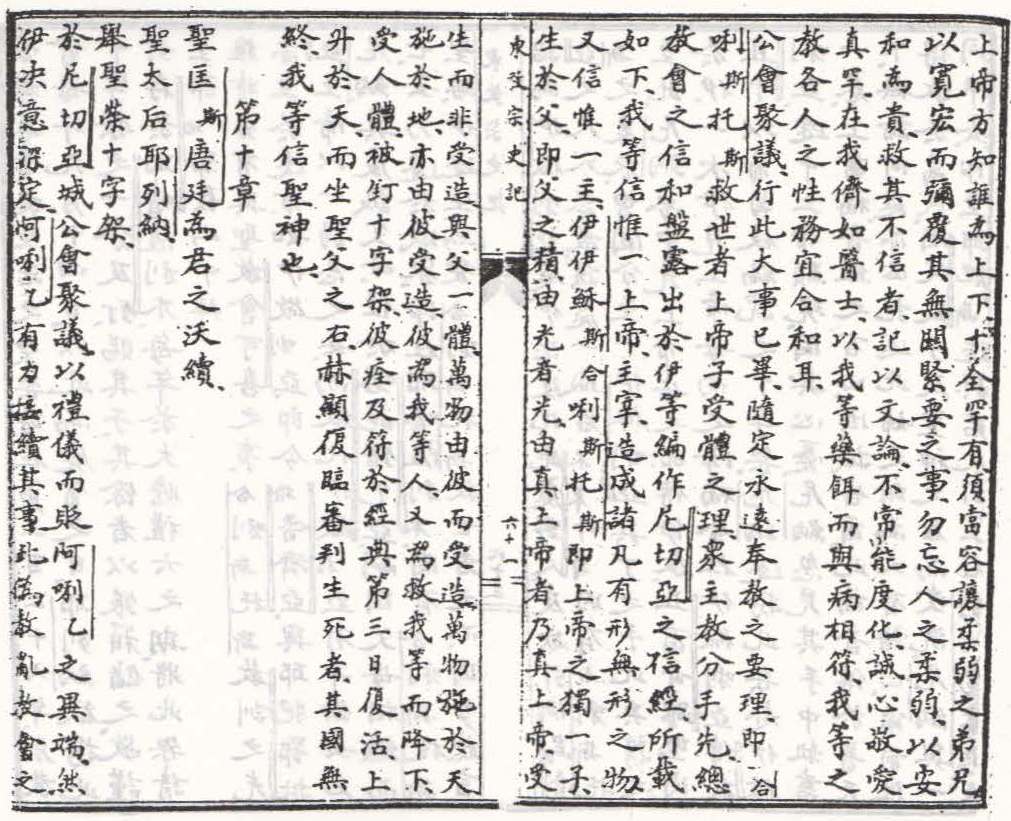 上帝方知誰為上下、十全罕有、須當容讓柔弱之弟兄
以寬宏而彌覆其無關緊要之事、勿忘人之柔弱、以安
和為貴救其不信者、記以文論、不常能度化、誠心敬愛
真罕、在我儕如醫士、以我等藥餌而與病相符、我等之
教各人之性務宜合和耳、
公會聚議、行此大事已畢、隨定永遠奉教之要理、即合
唎斯托斯救世者上帝子受體之理、眾主教分手先、總
教會之信和盤露出於伊等編作尼切亞之信經所載
如下、我等信惟一上帝、主宰造成、諸凡有形無形之物、
又信惟一主、伊伊穌斯合唎斯托斯即上帝之獨一子、
生於父、即父之精、由光者光、由真上帝者乃真上帝、受
東教宗史記
六十一
生而非受造與父一體、萬物由彼而受造、萬物施於天
施於地、亦由彼受造、彼為我等人、又為救我等而降下、
受人體、被釘十字架、彼痊及符於經典第三日復活、上
升於天、而坐聖父之右、赫顯復臨審判生死者、其國無
終、我等信聖神也、
第十章
聖匡斯唐廷為君之沃續、
聖太后耶列納、
舉聖榮十字架、
於尼切亞城公會聚議、以禮儀而貶阿唎乙之異端、然
伊決意深定、阿唎乙有力接續其事、此為教亂教會之